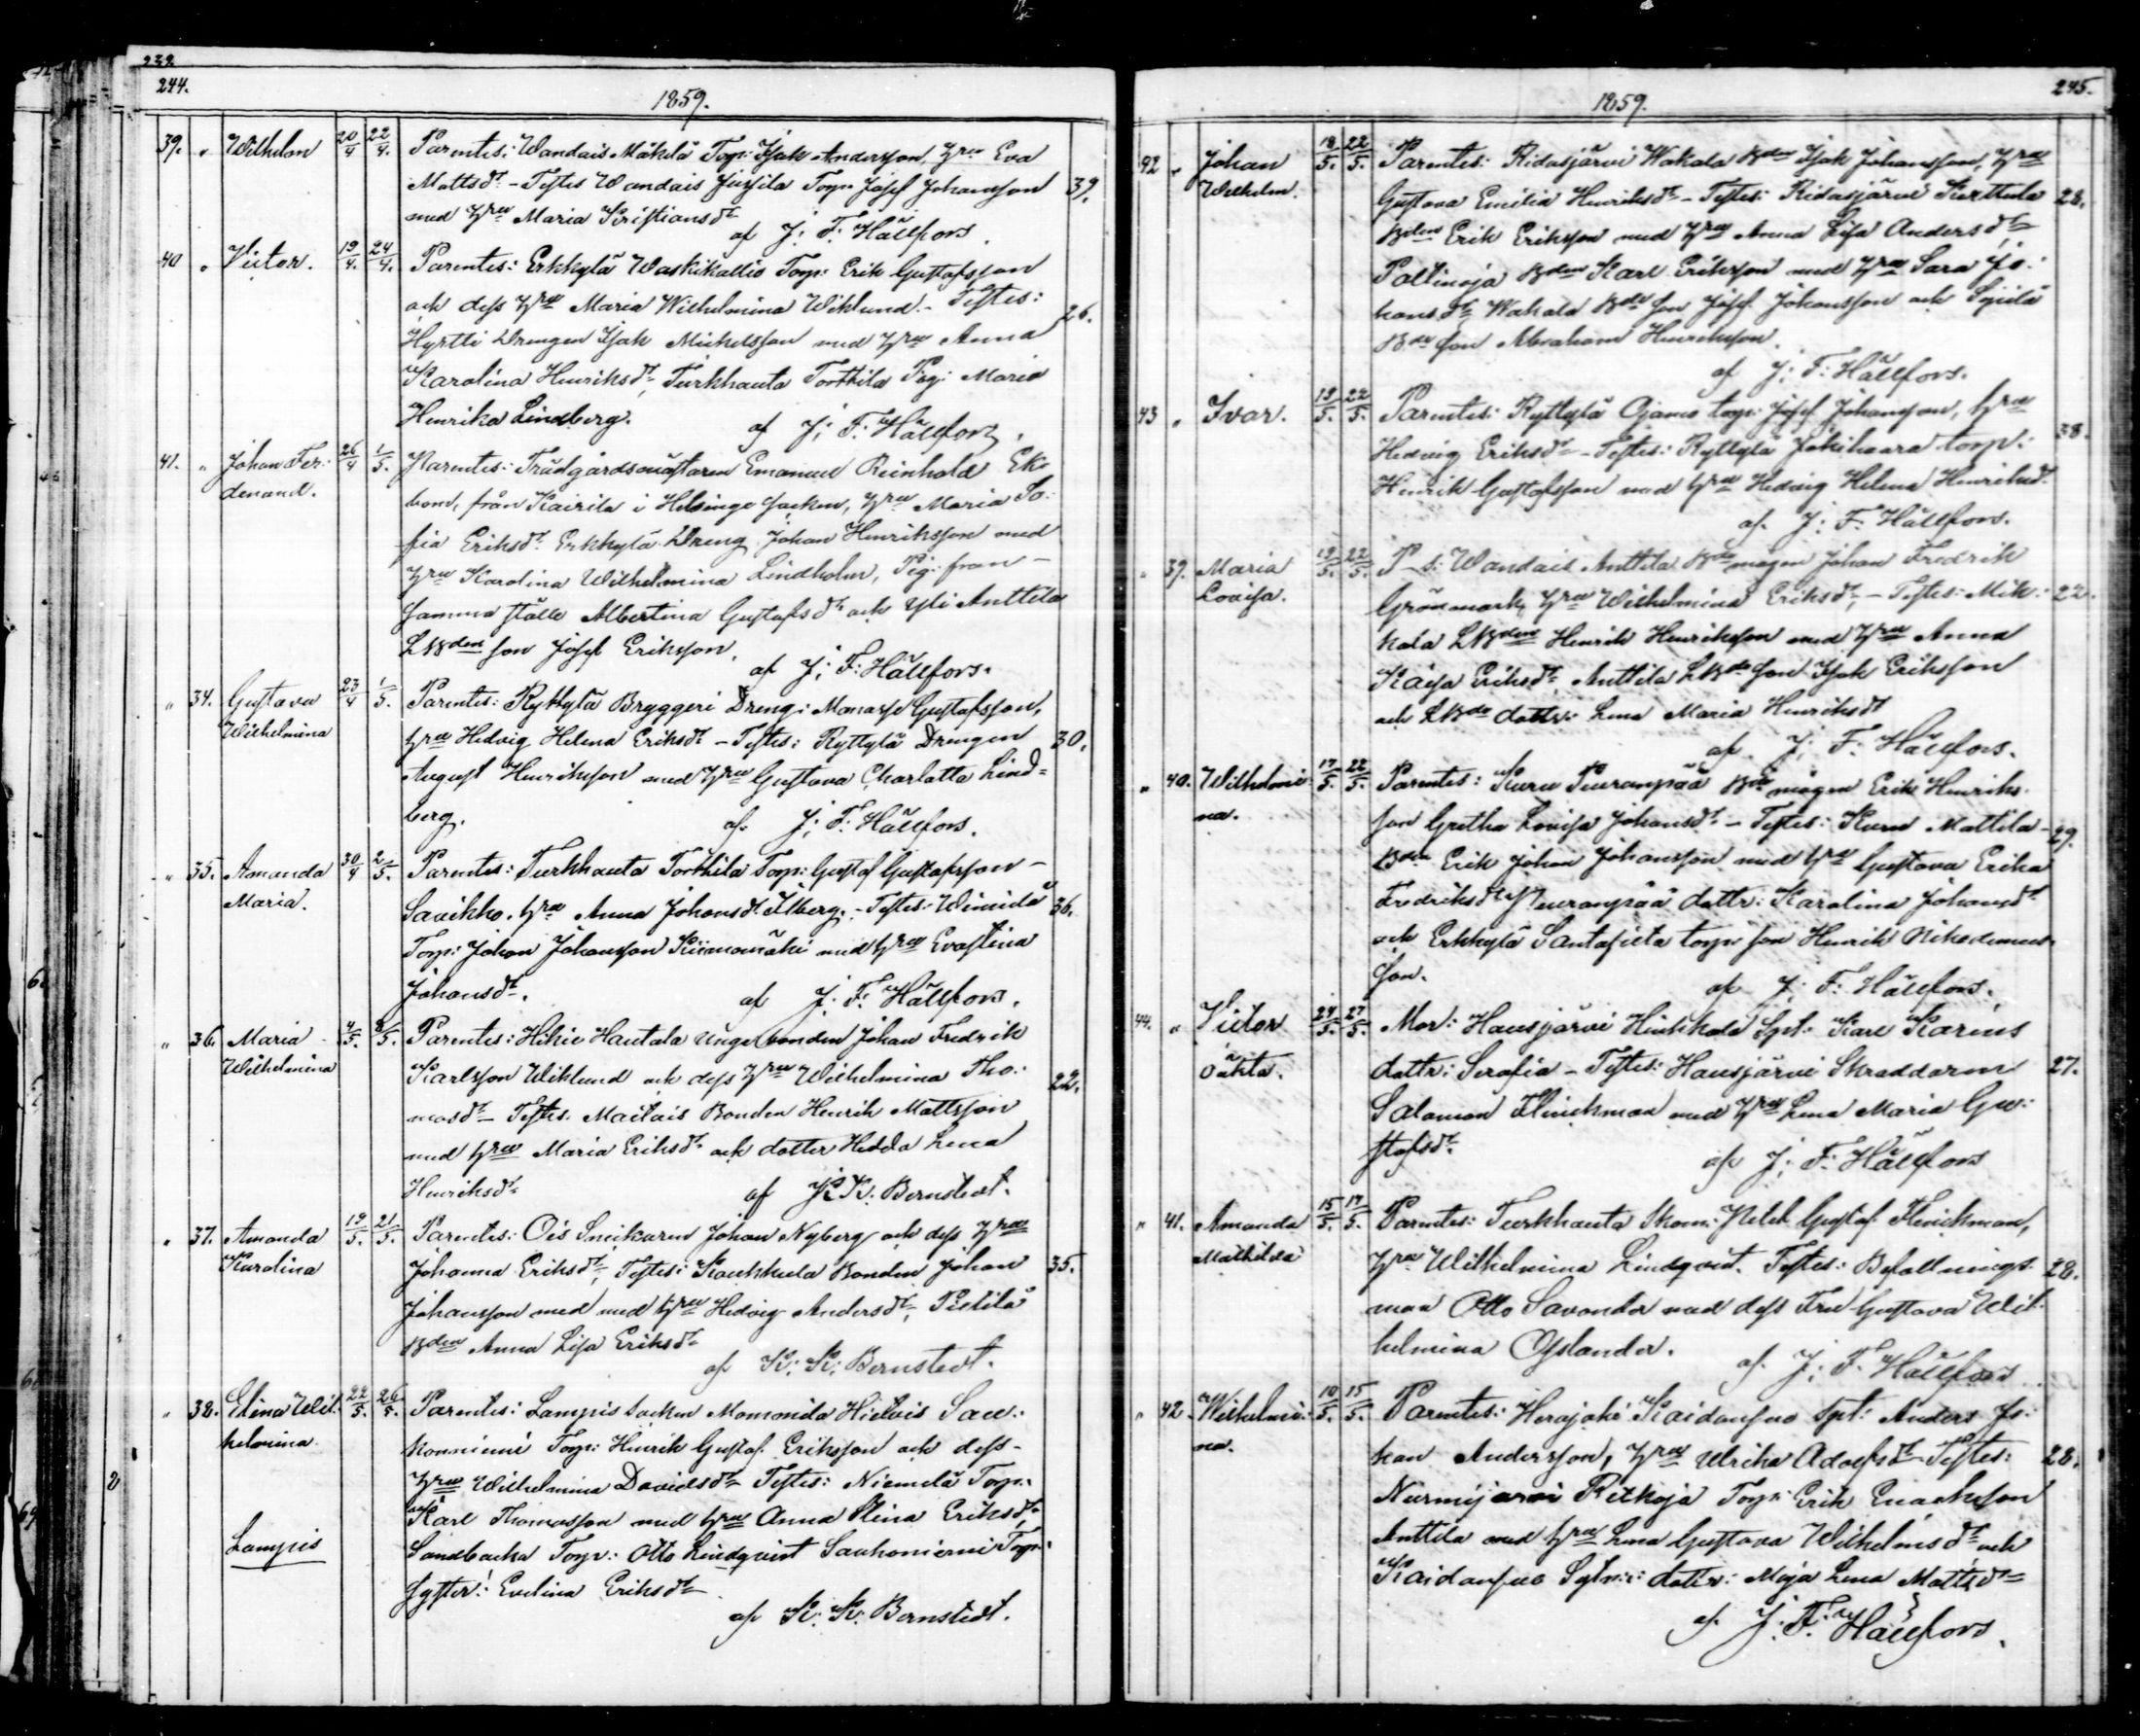 232.
244.
1859.
39. " Wilhelm 20/4 22/4. Parentes: Wandais Mäkelä Torp: Isak Andersson, hru Eva
Mattsdr - Testes Wandais Jussila Torp. Josef Johansson 39.
med hru Maria Kristiansdr
af J: F: Hällfors.
40 " Victor. 19/4. 24/4. Parentes: Erkkylä Waskikallio Torp: Erik Gustafsson
och dess hru Maria Wilhelmina Wiklund. - Testes: 26.
Hyrtti Drengen Isak Mickelsson med hru Anna
Karolina Henriksdr, Turkhauta Torttila Pig: Maria
Henrika Lindberg.
af J: F: Hällfors.
41. " Johan Fer: 26/4 1/5. Parentes: Trädgårdsmästaren Emanuel Reinhold Ek-
denand. bom, från Kairila i Helsinge socken, hru Maria So-
fia Eriksdr. Erkkylä Dreng Johan Henriksson med
hru Karolina Wilhelmina Lindholm, Pig: fran -
samma ställe Albertina Gustafsdr och Yli Anttila
LBden son Josef Eriksson.
af J: F: Hällfors.
" 34. Gustava 23/4 1/5. Parentes: Ryttylä Bryggeri Dreng: Manasse Gustafsson,
Wilhelmina hru Hedvig Helena Eriksdr - Testes: Ryttylä Drengen 30.
August Henriksson med hru Gustava Charlotta Lind=
berg. af J: F: Hällfors.
" 35. Amanda 30/4 2/5. Parentes: Turkhauta Torttila Torp: Gustaf Gustafsson -
Maria. Savikko, hru Anna Johansdr Ilberg. - Testes: 36.
Torp: Johan Johansson Kiimamäki med hru Evastina
Johansdr.
af J: F: Hällfors.
" 36. Maria 4/5. 8/5. Parentes: Hikie Hautala unge bonden Johan Fredrik
Wilhelmina Karlsson Wiklund och dess hru Wilhelmina Tho: 22.
masdr - Testes. Mailais Bonden Henrik Mattsson
med hru Maria Eriksdr och dotter Hedda Lena
Henriksdr
af K: K: Bernstedt.
" 37. Amanda 19/5. 21/5. Parentes: Ois Snickaren Johan Nyberg och dess hru
Karolina Johanna Eriksdr, Testes: Kaukkula Bonden Johan 35.
Johansson med med hru Hedvig Andersdr, Pietilä
Bden Anna Lisa Eriksdr
af K: K: Bernstedt.
" 38. Elina Wil: 22/5. 26/5. Parentes: Lampis socken Momonila Hietois Sau:
helmina. konniemi Torp: Henrik Gustaf Eriksson och dess -
hru Wilhelmina Davidsdr Testes: Niemelä Torp.
Karl Thomasson med hru Anna Stina Eriksdr,
Lampis Sandbacka Torp: Otto Lindqvist Saukoniemi Torp:
syster: Evelina Eriksdr
af K: K: Bernstedt.
245.
1859.
42 " Johan 18/5. 22/5. Parentes: Ridasjärvi Wakala Bden Isak Johansson, hru
Wilhelm. Gustava Emilia Henriksdr - Testes: Ridasjärvi Kerttula 28.
Bden Erik Eriksson med hru Anna Lisa Andersdr,
Paltinoja Bden Karl Eriksson med hru Sara Jo:
hansdr Wakala Bde son Josef Johansson och
Bde son Abraham Henriksson.
af J: F: Hällfors.
43 " Ivar. 19/5. 22/5. Parentes: Ryttylä Ojamo torp: Josef Johansson, hru
Hedvig Eriksdr - Testes: Ryttylä Jokihaara torp: 38.
Henrik Gustafsson med hru Hedvig Helena Henriksdr
af J: F: Hällfors.
" 39. Maria 19/5. 22/5. P-s: Wandais Anttila Bde mågen Johan Fredrik
Lovisa. Grönmark, hru Wilhelmina Eriksdr, - Testes: Mik: 22.
kola LBden Henrik Henriksson med hru Anna
Kaisa Eriksdr, Anttila LBde son Isak Eriksson
och LBde dottr: Lena Maria Henriksdr
af J: F: Hällfors.
" 40. Wilhelmi: 17/5. 22/5. Parentes: Kuru Puuranpää Bde mågen Erik Henriks
na. son Gretha Lovisa Johansdr - Testes: Kuru Mattila - 29.
Bden Erik Johan Johansson med hru Gustava Erika
Fredriksdr Puuranpää dottr: Karolina Johansdr
och Erkkylä Santafälta torp: son Henrik Nikodemus
son.
af J: F: Hällfors.
44. " Victor 24/5. 27/5. Mor: Hausjärvi Hinkkala Spt: Karl Karins
oäkta. dottr: Serafia - Testes: Hausjärvi Skraddaren 27.
Salomon Flinckman med hru Lena Maria Gu:
stafsdr.
af J: F: Hällfors
" 41. Amanda 15/5. 17/5. Parentes: Turkhauta Skom: Gustaf Flinckman,
Mathilda hru Wilhelmina Lindqvist. Testes: Befallnings- 28.
man Otto Savander med dess Fru Gustava Wil-
helmina Oslander.
af J: F: Hällfors
" 42. Wilhelmi: 10/5. 15/5. Parentes: Herajoki Kaidansuo Spt: Anders Jo:
na. han Andersson, hru Ulrika Adolfsdr - Testes: 28.
Nurmijärvi Ritkoja Torp: Erik Enochsson
Anttila med hru Lena Gustava Wilhelmsdr och
Kaidansuo dottr: Maja Lena Mattsdr
af J: F: Hällfors.